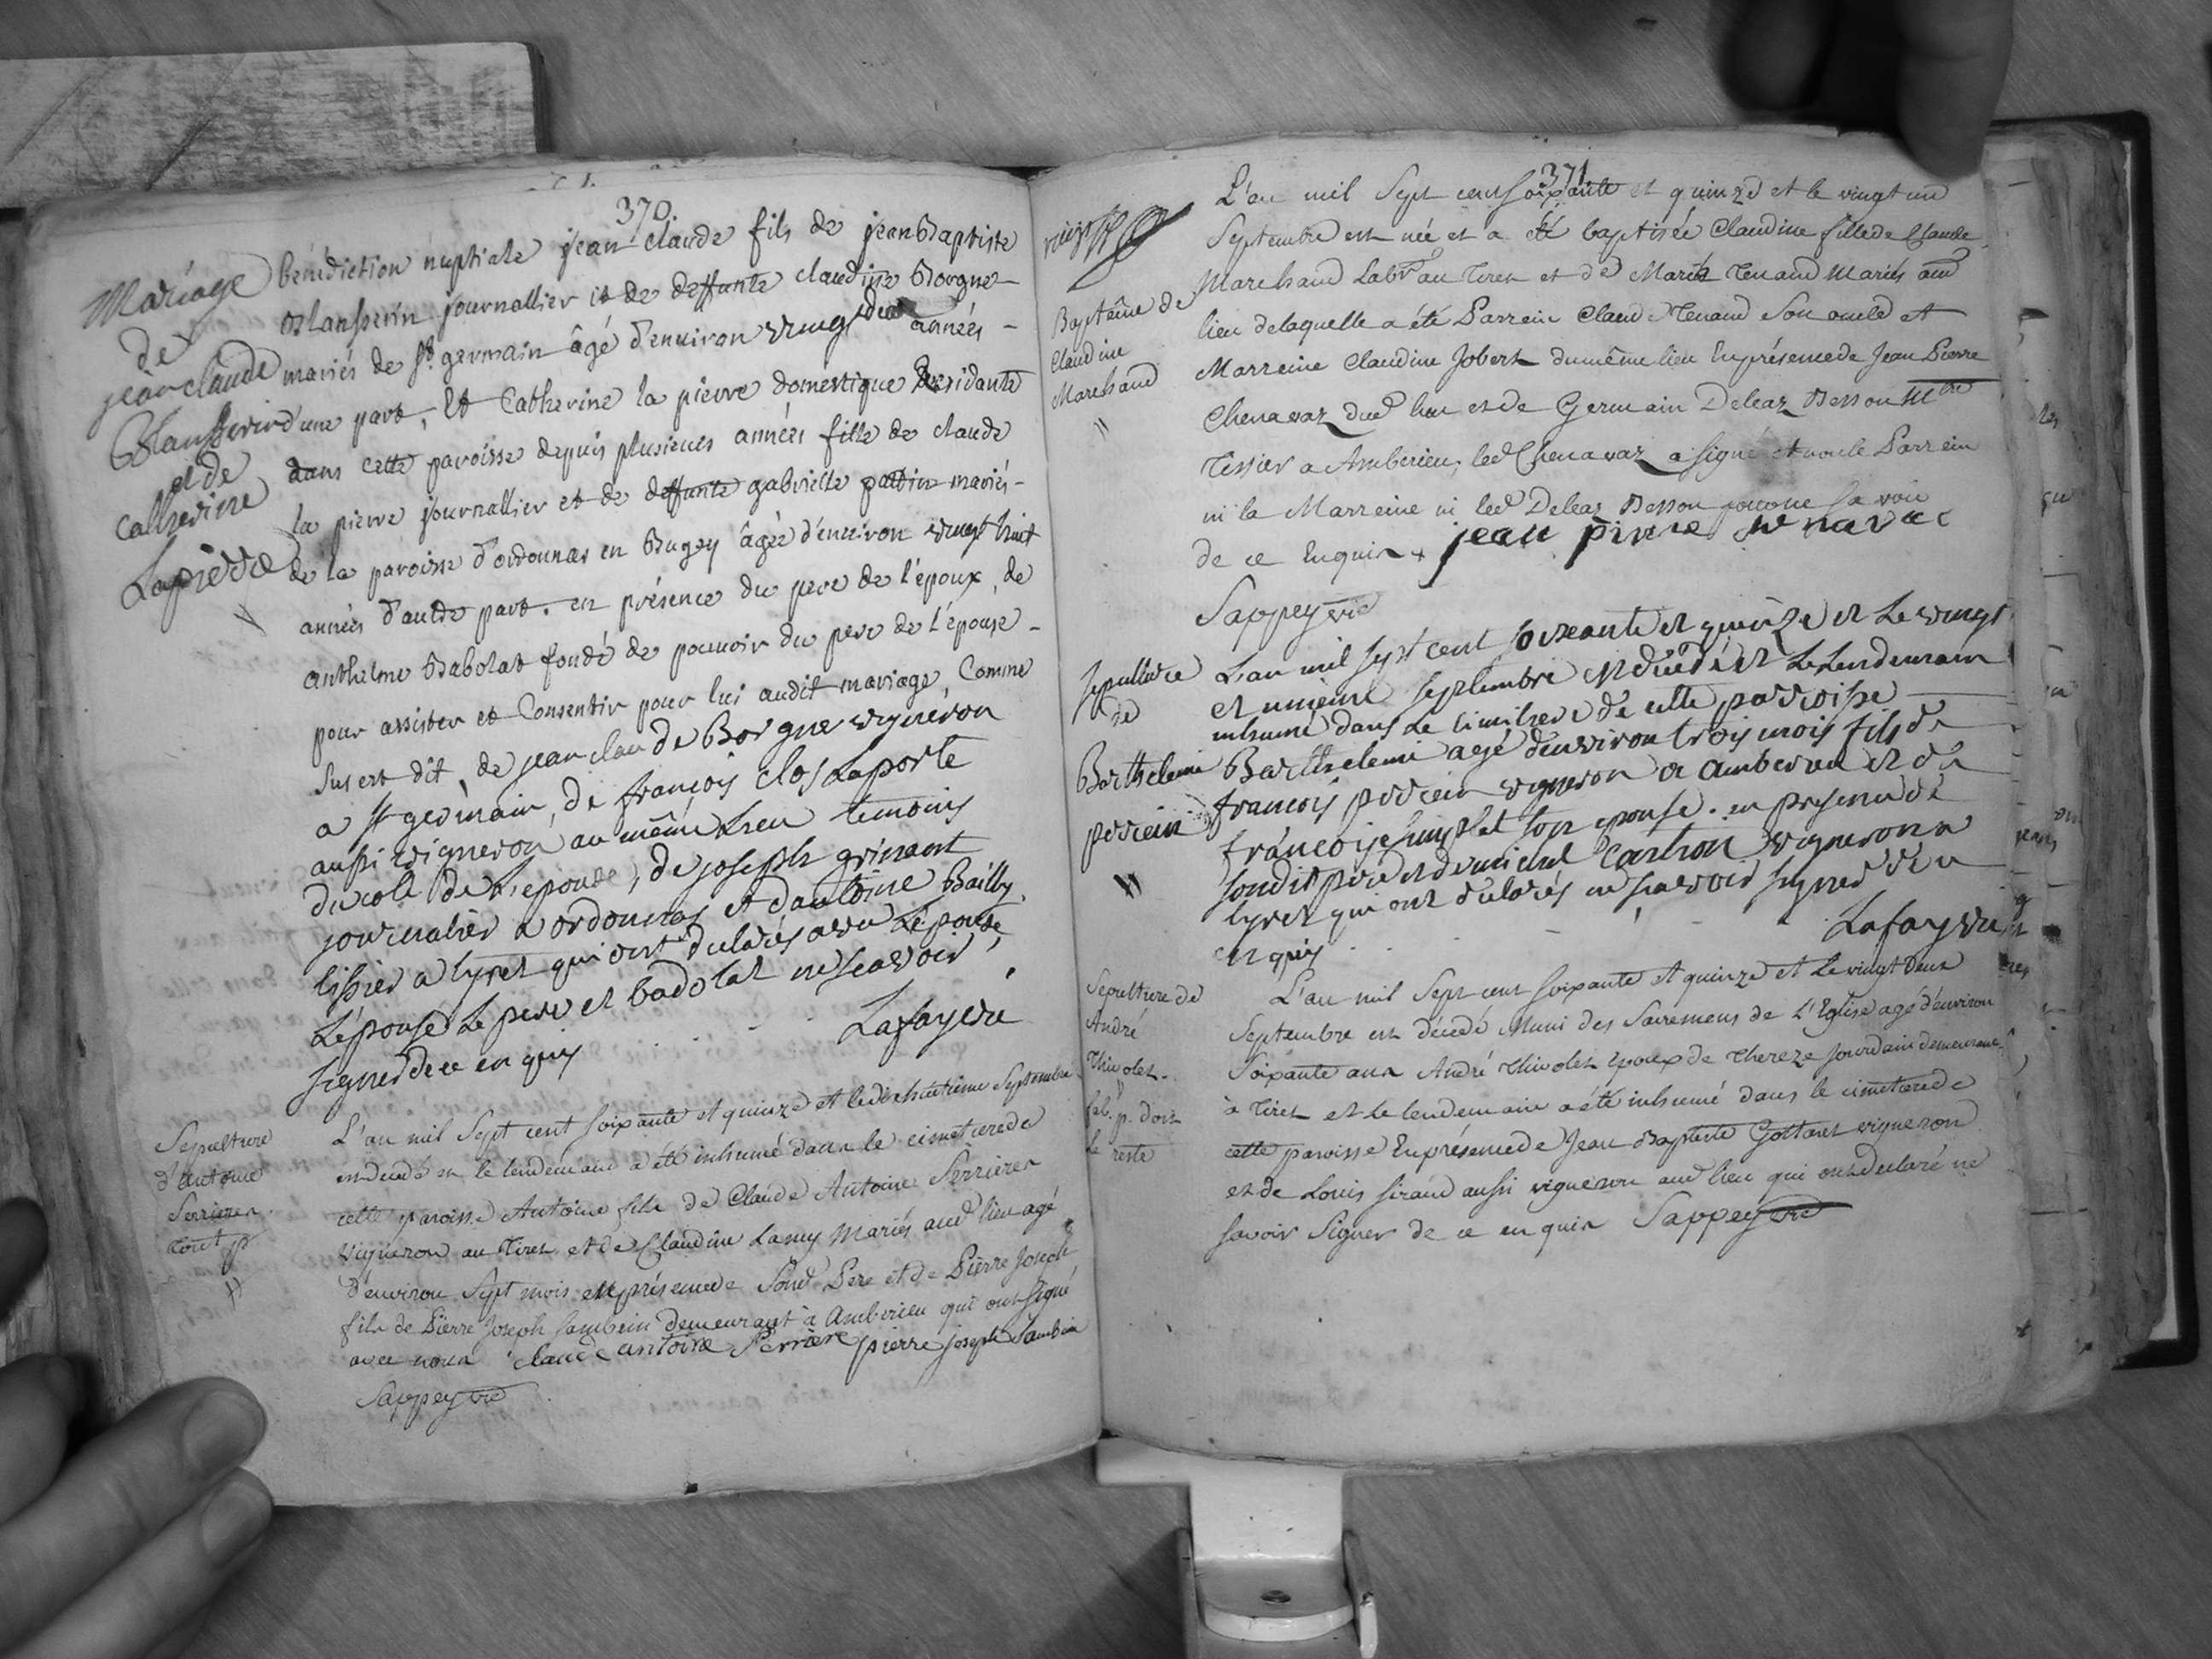 370.
Mariage
de
jean claude
Blansserin
et de
Catherine
Lapierre
bénédiction nuptiale jean claude fils de jean Baptiste
Blansserin journallier et de deffunte claudine Borgne
mariés de St. germain âgé d'environ vingt deux années
d'une part, Et Catherine la pierre domestique Residante
dans cette paroisse depuis plusieurs années fille de claude
la pierre journallier et de deffunte gabrielle mariés
de la paroisse d'ordonnas en Bugey âgée d'environ vingt huit
années d'autre part. en présence du pere de l'époux, de
anthelme Babolat fondé de pouvoir du pere de l'épouse
pour assister et Consentir pour lui audit mariage, Comme
sus est dit, de jean claude Borgne vigneron
a st germain, de françois clos Laporte
aussi vigneron au même Lieu temoins
du coté de L'epoux, de joseph grinant
journalier a ordonnas et d'antoine Bailly
tissier a tyret qui ont déclarés avec L'epouse
L'épouse Le pere et badolat ne scavoir
signer de ce enquis
Lafayere
Sepulture
d'antoine
Serrieres
L'an mil Sept cent soixante et quinze et le dixhuitieme Septembre
est decedé et le lendemain a été inhumé dans le cimetiere de
cette paroisse Antoine fils de Claude Antoine Serrieres
Vigneron au Tiret et de Claudine Lamy Mariés aud lieu agé
d'environ Sept mois en présence de Sond Pere et de Pierre Joseph
fils de Pierre Joseph Sambin demeurant à Amberieu qui ont signé
avec nous claude antoine Serriere pierre joseph Sambin
Sappey vic
371
Baptême de
Claudine
Marchand
L'an mil Sept cent soixante et quinze et le vingt un
Septembre est née et a été baptisée Claudine fille de Claude
Marchand Labr au Tiret et de Marie Tenand Mariés aud
lieu de laquelle a été Parrein Claud Tenand Son oncle et
Marreine Claudine Jobert du même lieu En présence de Jean Pierre
Chenavaz dud lieu et de Germain Deleaz Besson
Tissier a Amberieu, led Chenavaz a signé et non le Parrein
ni la Marreine ni led Deleaz Besson savoir
de ce Enquis
jean pierre
Sappey vic
sepulture
de
Barthelemi
perrein
L'an mil sept cent soixante et quinze et Le vingt
et unieme septembre est decedé et Le Lendemain
inhumé dans Le cimitiere de cette parroisse
Barthelemi agé d'environ trois mois fils de
françois perrein vigneron a amberieu et de
françoise simplet son epouse. en presence de
sondit pere et de michel Carthon vigneron a
tyret qui ont déclarés ne scavoir signer de ce
enquis
Lafayere
Sepulture de
André
Thivolet
L'an mil Sept cent soixante et quinze et Le vingt deux
Septembre est décedé Muni des Sacremens de L'Eglise agé d'environ
Soixante ans André Thivolet Epoux de Thereze Jourdain demeurant
à Tiret et Le lendemain a été inhumé dans le cimetiere de
cette paroisse En présence de Jean Baptiste Gottaret vigneron
et de Louis Sirand aussi vigneron aud lieu qui ont declaré ne
savoir Signer de ce enquis Sappey vic